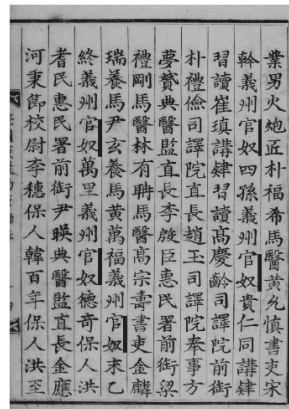 業男火炮匠朴福希馬醫黃允慎書吏宋
幹義州官奴四孫義州官奴貴仁同講肄
習讀崔瑱講肄習讀高慶齡司譯院前銜
朴禮儉司譯院直長趙玉司譯院奉事方
夢贇典醫監直長李啟臣惠民署前銜梁
禮剛馬醫林有聃馬醫高宗壽書吏金麟
瑞養馬尹玄養馬黃萬福義州官奴末乙
終義州官奴萬里義州官奴德奇保人洪
者民惠民署前銜尹暎典醫監直長金應
河秉節校尉李穗保人韓百年保人洪至